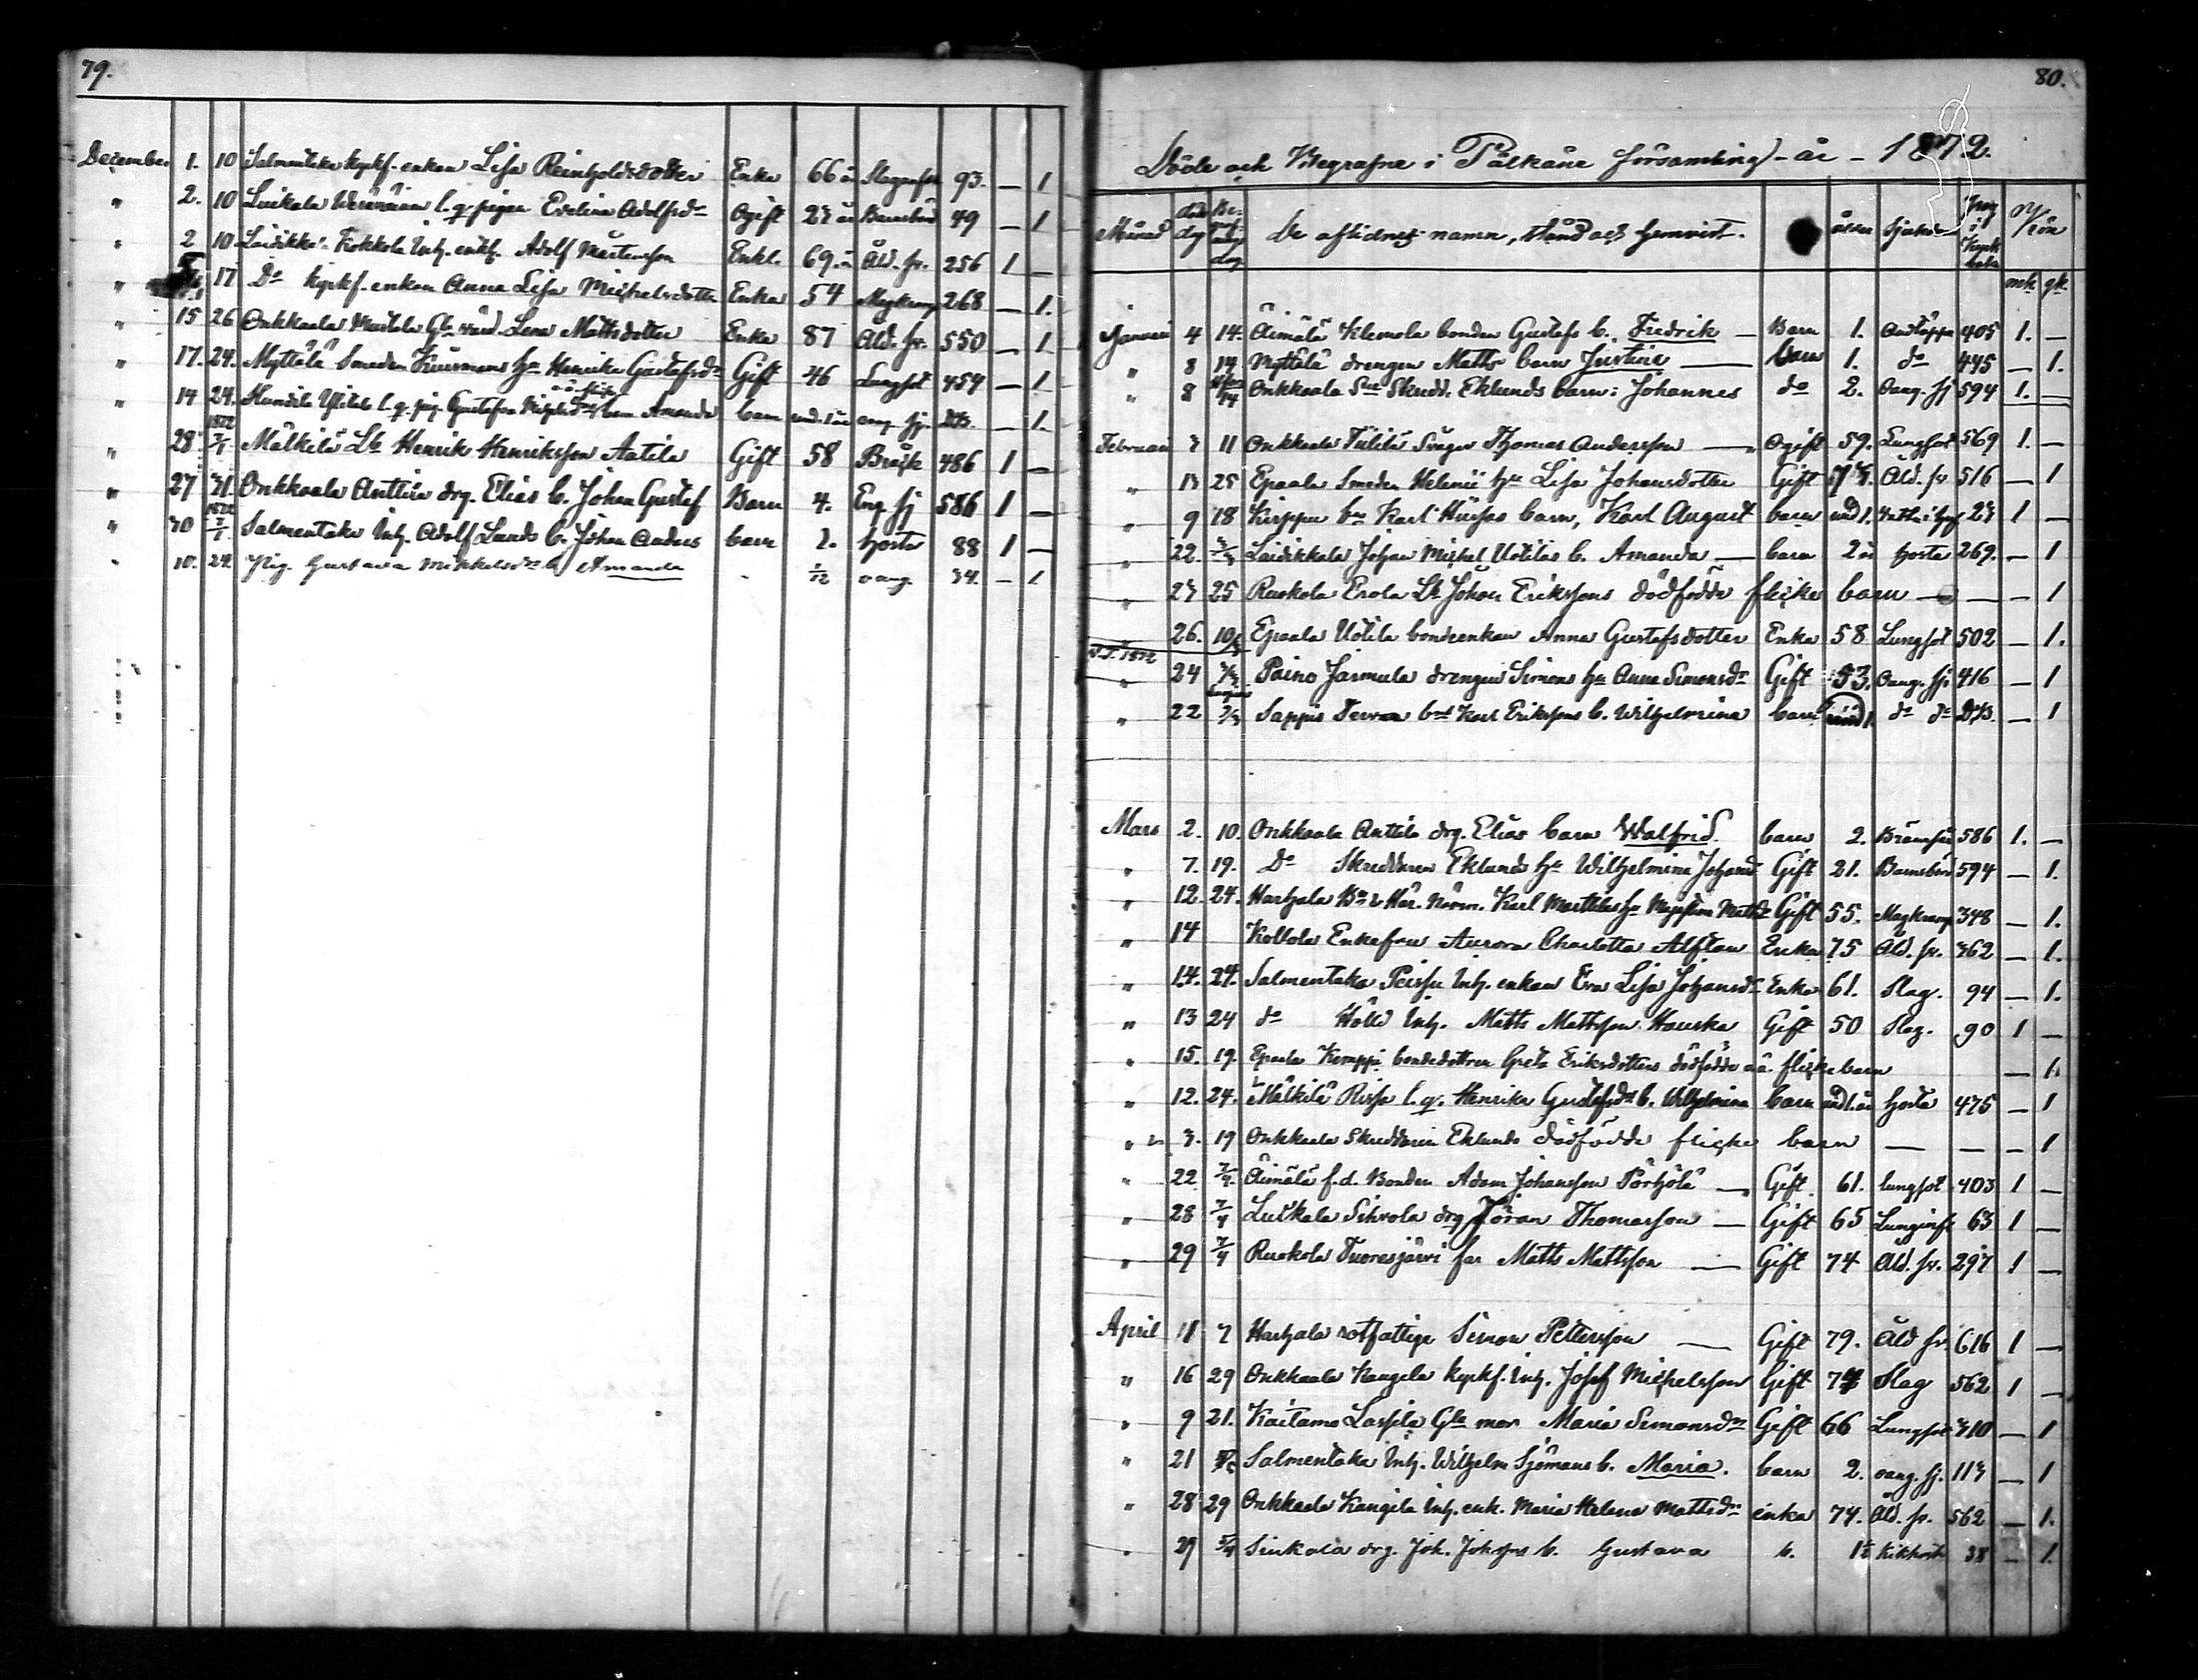 79.
December 1. 10 Salmentaka kyrkf. enkan Lisa Reinholdsdotter Enka 66 Slaganfall 93. — 1
" 2. 10 Luikala l. q. pigan Evelina Adolfsdr Ogift 27 år Barnsbörd 49 — 1
" 2 10 Laidikka Kokkola Inh. enkl. Adolf Mårtensson Enkl. 69. Åld. sv. 256 1 —
" 17 Do kyrkf. enkan Anna Lisa Michelsdotter Enka 54 Magkramp 268 — 1.
" 15 26 Onkkaala Lena Mattsdotter Enka 87 Åld. sv. 550 — 1
" 17. 24. Myttälä Smeden hu Henrika Gustafsdr Gift 46 Lungsot 454 — 1
" 14 24. l. q. pig. Gustafva barn Amanda barn und. 1 år — 1.
" 28. 1872 7/1 Mälkilä Lb Henrik Henriksson Aatila Gift 58 Bråck 486 1 —
" 27 31. Onkkaala Anttila drg. Elias b. Johan Gustaf Barn 4. Eng sj 586 1 —
" 30 1872 7/1 Salmentaka Inh. Adolf Lunds b. Johan Anders barn 2. hosta 88 1 —
" 10. 24. Pig. Gustava Mikkelsdr b. Amanda 1/12 oang. 34. — 1
80.
Döde och Begrafne i Pälkäne församling - år - 1872.
Månad död dag Begrafnings dag De aflidnes namn, stånd och hemvist. ålder Sjukdom pag i Kyrk boken Kön
mk. qk.
Januari 4 14. Äimälä Klemola bonden Gustafs b. Fredrik — Barn 1. Andtäppa 405 1. —
" 8 14 Myttälä drengen Matts barn Justina — barn 1. do 445 — 1.
" 8 14 Onkkaala Skredd. Eklunds barn: Johannes do 2. Oang. sj 594 1. —
Februari 3 11 Onkkaala Tiitilä Svåger Thomas Andersson — Ogift 59. Lungsot 569 1. —
" 13 25 Epaala Smeden hu Lisa Johansdotter Gift Åld. sv 516 — 1
" 9 18 Kirppu Karl barn, Karl August barn und 1. 23 1 —
" 22. 3/3 Laidikkala Johan Michel Uotilas b. Amanda — barn 2 år hosta 269. — 1
" 23 25 Ruokola Erola Lb Johan Erikssons dödfödda flicke barn — — — 1
26. 10/3 Epaala Uotila bondeenkan Anna Gustafsdotter Enka 58 Lungsot 502 — 1.
" 24 3/3 Paino Jarmula drengen Simons hu Anna Simonsdr Gift 53. Oang. sj. 416 — 1
" 22 3/3 Sappee Karl Erikssons b. Wilhelmina barn und 1. do do — 1
Mars 2. 10. Onkkaala Anttila drg. Elias barn Walfrid. barn 2. 586 1. —
" 7. 19. Do Skreddaren Eklunds hu Wilhelmina Johansd Gift 21. Barnsbörd 594 — 1.
" 12. 24. Harhala Karl Gift 55. Magkramp 348 — 1.
" 14 Kollola Enkefru Aurora Charlotta Alftan Enka 75 Åld. sv. 362 — 1.
" 14. 24. Salmentaka Inh. enkan Eva Lisa Johansdr Enka 61. Slag. 94 — 1.
" 13 24 do Inh. Matts Mattsson Hauska Gift 50 Slag. 90 1 —
" 15. 19. Epaala Kemppi bondedottren Greta Eriksdotters dödfödda oä. flickebarn — 1.
" 12. 24. Mälkilä Rissa l. q. Henrika Gustafsdr b. Wilhelmina barn und 1 år hosta 475 — 1
" 3. 19 Onkkaala Skreddaren Eklunds dödfödda flicke barn — — — 1
" 22 7/4. Äimälä f. d. Bonden Adam Johansson Pörhölä — Gift 61. lungsot 403 1 —
" 28 7/4 Luikala Sihvola drg Göran Thomasson — Gift 65 Lunginfl 63 1 —
" 29 7/4 Ruokola Tuoresjärvi far Matts Mattsson — Gift 74 Åld. sv. 297 1 —
April 11 Harhala rotfattige Simon Pettersson — Gift 79. Åld sv. 616 1 —
" 16 29 Onkkaala Kangila kyrkf. Inh. Josef Michelsson Gift Slag 562 1 —
" 9 21. Kaitamo Lassila Gla mor Maria Simonsdr Gift 66 Lungsot 310 — 1
" 21 Salmentaka Inh. Wilhelm Sjömans b. Maria. barn 2. oang. sj. 113 — 1
" 28 29 Onkkaala Kangila Inh. enk. Maria Helena Mattsdr enka 74. Åld. sv. 562 — 1.
" 29 Luikala drg. Joh. Johssons b. Gustava b. Kikhosta 38 — 1.